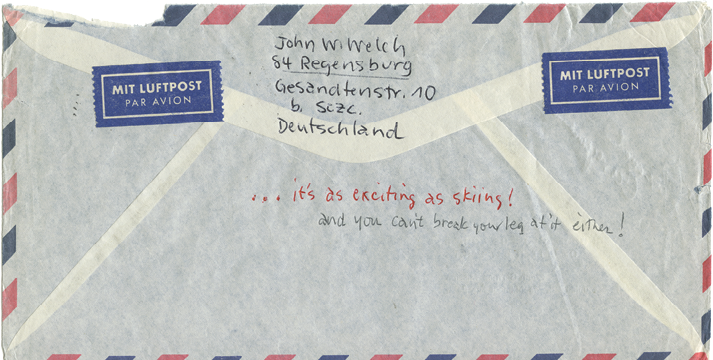 John W. Welch
84 Regensburg
Gesandtenstr. 10
b. Sczc.
Deutschland
MIT LUFTPOST
PAR AVION
MIT LUFTPOST
PAR AVION
... it's as exciting as skiing!
and you can't break your leg at it either!